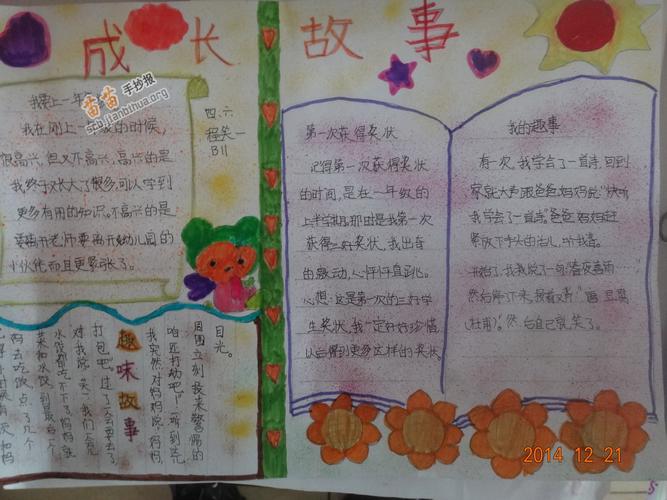 成长故事
苗苗手抄报
scb.jianbihua.org
我要上一年
我在刚上一级的时候,
很高兴,但又不高兴,高兴的是
我终于长大了很多,可以学到
更多有用的知识。不高兴的是
要离开老师要离开幼儿园的
小伙伴而且更紧张了。
四、六
程笑一
B11
第一次获得奖状
记得第一次获得奖状
的时间,是在一年级的
上半学期,那由是我第一次
获得三好奖状,我出奇
的激动,心怦怦直跳。
心想:这是第一次的三好学
生奖状,我一定好好珍惜
以后得到更多这样的奖状
我的趣事
有一次,我学会了一首诗,回到
家就大声跟爸爸妈妈说"快听
我学会了一首诗"爸爸妈妈赶
紧放下手头的活儿,听我
开始了,我说了一句"春夜喜雨
然后停下来,接着又 " 画
杜甫)。然后自己就笑了。
趣味故事
目光。
周围立刻投来惊讶的
咱还打劫吧!一听到
我突然对妈妈说:妈妈,
打包吧。过了一会要去了
对我说:笑一我们
水饺都吃不下了妈妈就
菜和水饺,到最后一个
妈去吃饭,点了几个
2014 12 21